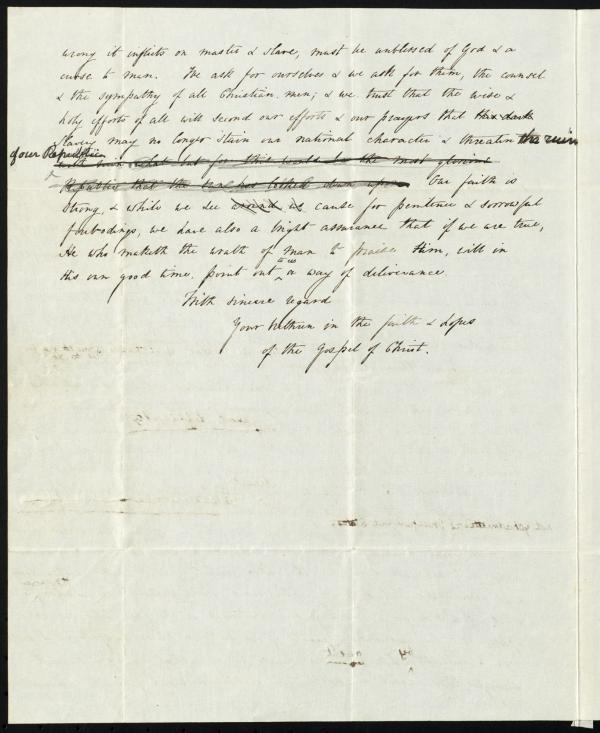 wrong it inflicts on master & slave, must be unblessed of God & a
curse to man. We ask for ourselves & we ask for them, the counsel
& the sympathy of all Christian men; & we trust that the wise &
holy efforts of all will second our efforts & our prayers that this dark
slavery may no longer stain our national character & threaten the ruin
of our Republic
but for this would be the most glorious
Republic that the sun has looked down upon Our faith is
strong, & while we see around us cause for penitence & sorrowful
forbodings, we have also a bright assurance that if we are true,
He who maketh the wrath of man to praise Him, will in
His own good time, point out to us a way of deliverance
With sincere regard
Your brethren in the faith & hopes
of the Gospel of Christ.